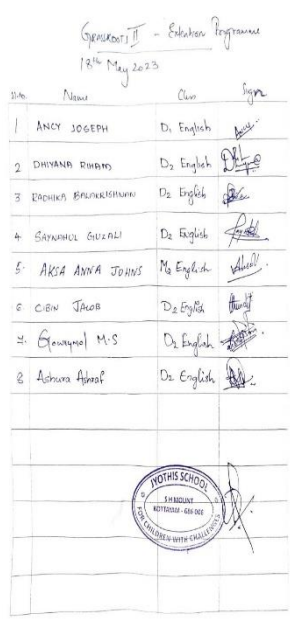 GRASSROOTS II - Extention Programme
18th May 2023
Sl.No. Name Class Sign
1 ANCY JOSEPH D2 English
2 DHIYANA RIHAM D2 English
3 RADHIKA BALAKRISHNAN D2 English
4 SAYNAHUL GUZALI D2 English
5. AKSA ANNA JOHNS M2 English
6 CIBIN JACOB D2 English
7. Gowrymol M.S D2 English
8 Ashura Ashraf D2 English
JYOTHIS SCHOOL
S H MOUNT
KOTTAYAM - 686 006
FOR CHILDREN WITH CHALLENGES